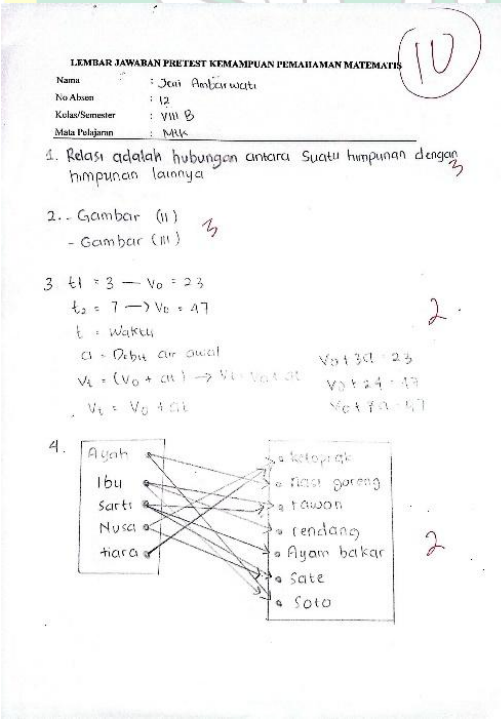 LEMBAR JAWABAN PRETEST KEMAMPUAN PEMAHAMAN MATEMATIS
10
Nama : Jeni Ambarwati
No Absen : 12
Kelas/Semester : VIII B
Mata Pelajaran : MTK
1. Relasi adalah hubungan antara suatu himpunan dengan
himpunan lainnya
3
2. - Gambar (II)
- Gambar (III)
3
3 t1 = 3 — Vo = 23
t2 = 7 —> Vo = 47
2
t = Waktu
a = Debit air awal
Vt = (Vo + at) →
Vt = Vo + at
Vo + 3a = 23
4.
Ayah
Ibu
Sarti
Nusa
tiara
ketoprak
nasi goreng
rawon
rendang
Ayam bakar
Sate
Soto
2